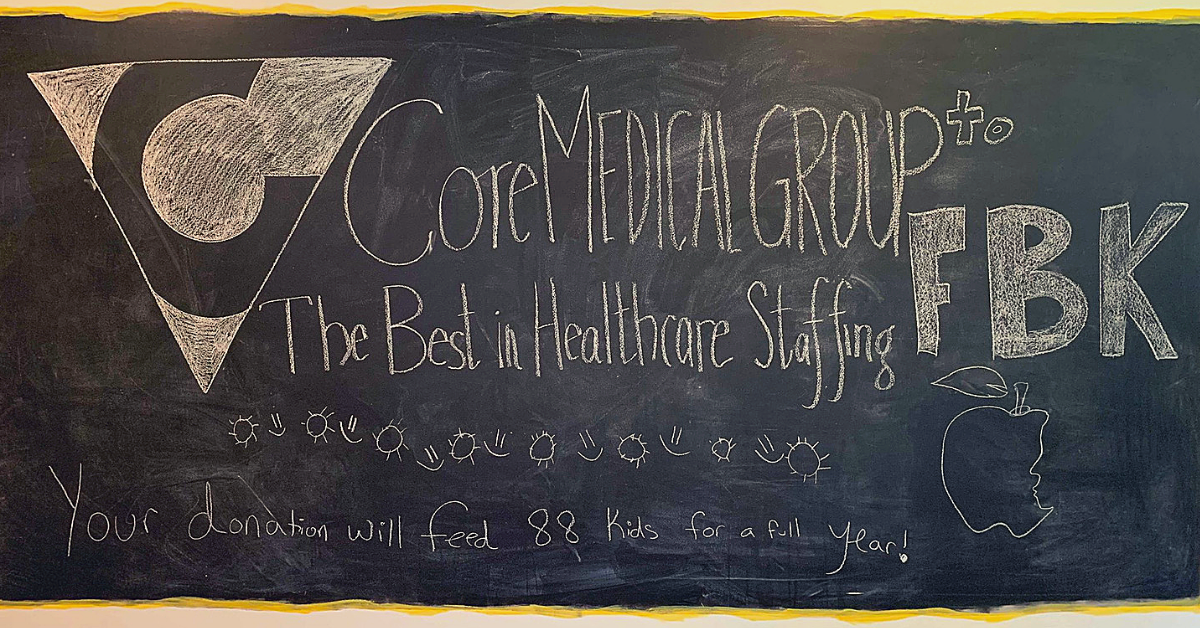 Core MEDICAL GROUP to
FBK
The Best in Healthcare Staffing
Your donation will feed 88 Kids for a full year!